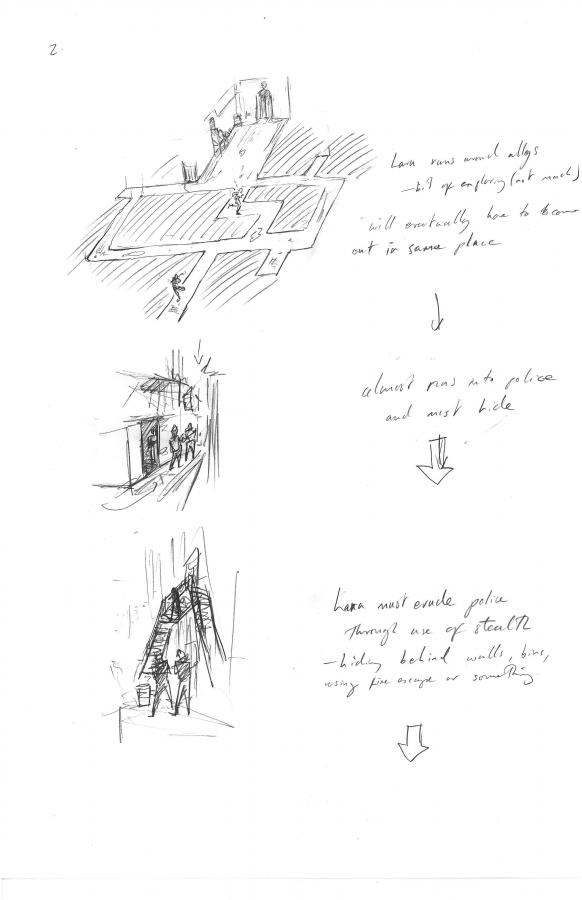 2.
Lara runs around alleys
- bit of exploring (not much)
will eventually have to come
out in same place
almost runs into police
and must hide
Lara must evade police
through use of stealth
- hiding behind walls, bins,
using fire escape or something.